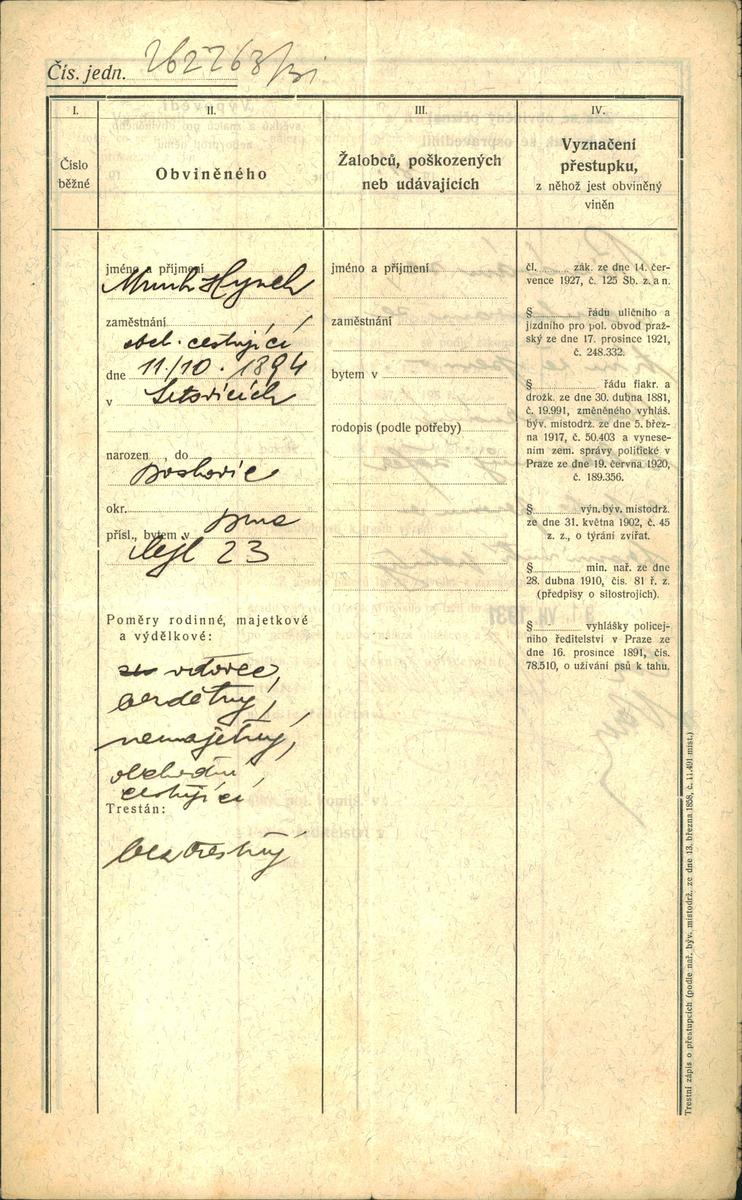 Čís. jedn. 262763/31
I.
Číslo
běžné
II.
Obviněného
jméno a příjmení
Munk Hynek
zaměstnání
obch. cestující
dne 11/10. 1894
v Letovicích
narozen do
Boskovic
okr.
Brno
přísl., bytem v
23
Poměry rodinné, majetkové
a výdělkové:
vdovec,
bezdětný,
nemajetný,
obchodní
cestující
Trestán:
beztrestný
III.
Žalobců, poškozených
neb udávajících
jméno a příjmení
zaměstnání
bytem v
rodopis (podle potřeby)
IV.
Vyznačení
přestupku,
z něhož jest obviněný
viněn
čl. zák. ze dne 14. čer-
vence 1927, č. 125 Sb. z. a n.
§ řádu uličního a
jízdního pro pol. obvod praž-
ský ze dne 17. prosince 1921,
č. 248.332.
§ řádu fiakr. a
drožk. ze dne 30. dubna 1881,
č. 19.991, změněného vyhláš.
býv. místodrž. ze dne 5. břez-
na 1917, č. 50.403 a vynese-
ním zem. správy politické v
Praze ze dne 19. června 1920,
č. 189.356.
§ výn. býv. místodrž.
ze dne 31. května 1902, č. 45
z. z., o týrání zvířat.
§ min. nař. ze dne
28. dubna 1910, čís. 81 ř. z.
(předpisy o silostrojích).
§ vyhlášky policej-
ního ředitelství v Praze ze
dne 16. prosince 1891, čís.
78.510, o užívání psů k tahu.
Trestní zápis o přestupcích (podle nař. býv. místodrž. ze dne 13. března 1858, č. 11.491 míst.)